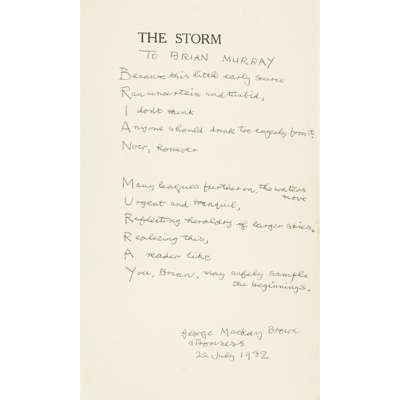 THE STORM
To BRIAN MURRAY
Because this little early source
Ran uncertain and turbid,
I don't think
Anyone should drink too eagerly from it.
Now, however
Many leagues further on, the waters
move
Urgent and tranquil,
Reflecting heraldry of larger skies.
Realising this,
A reader like
You, Brian, may safely sample
the beginnings.
George Mackay Brown
Stromness
22 July 1982